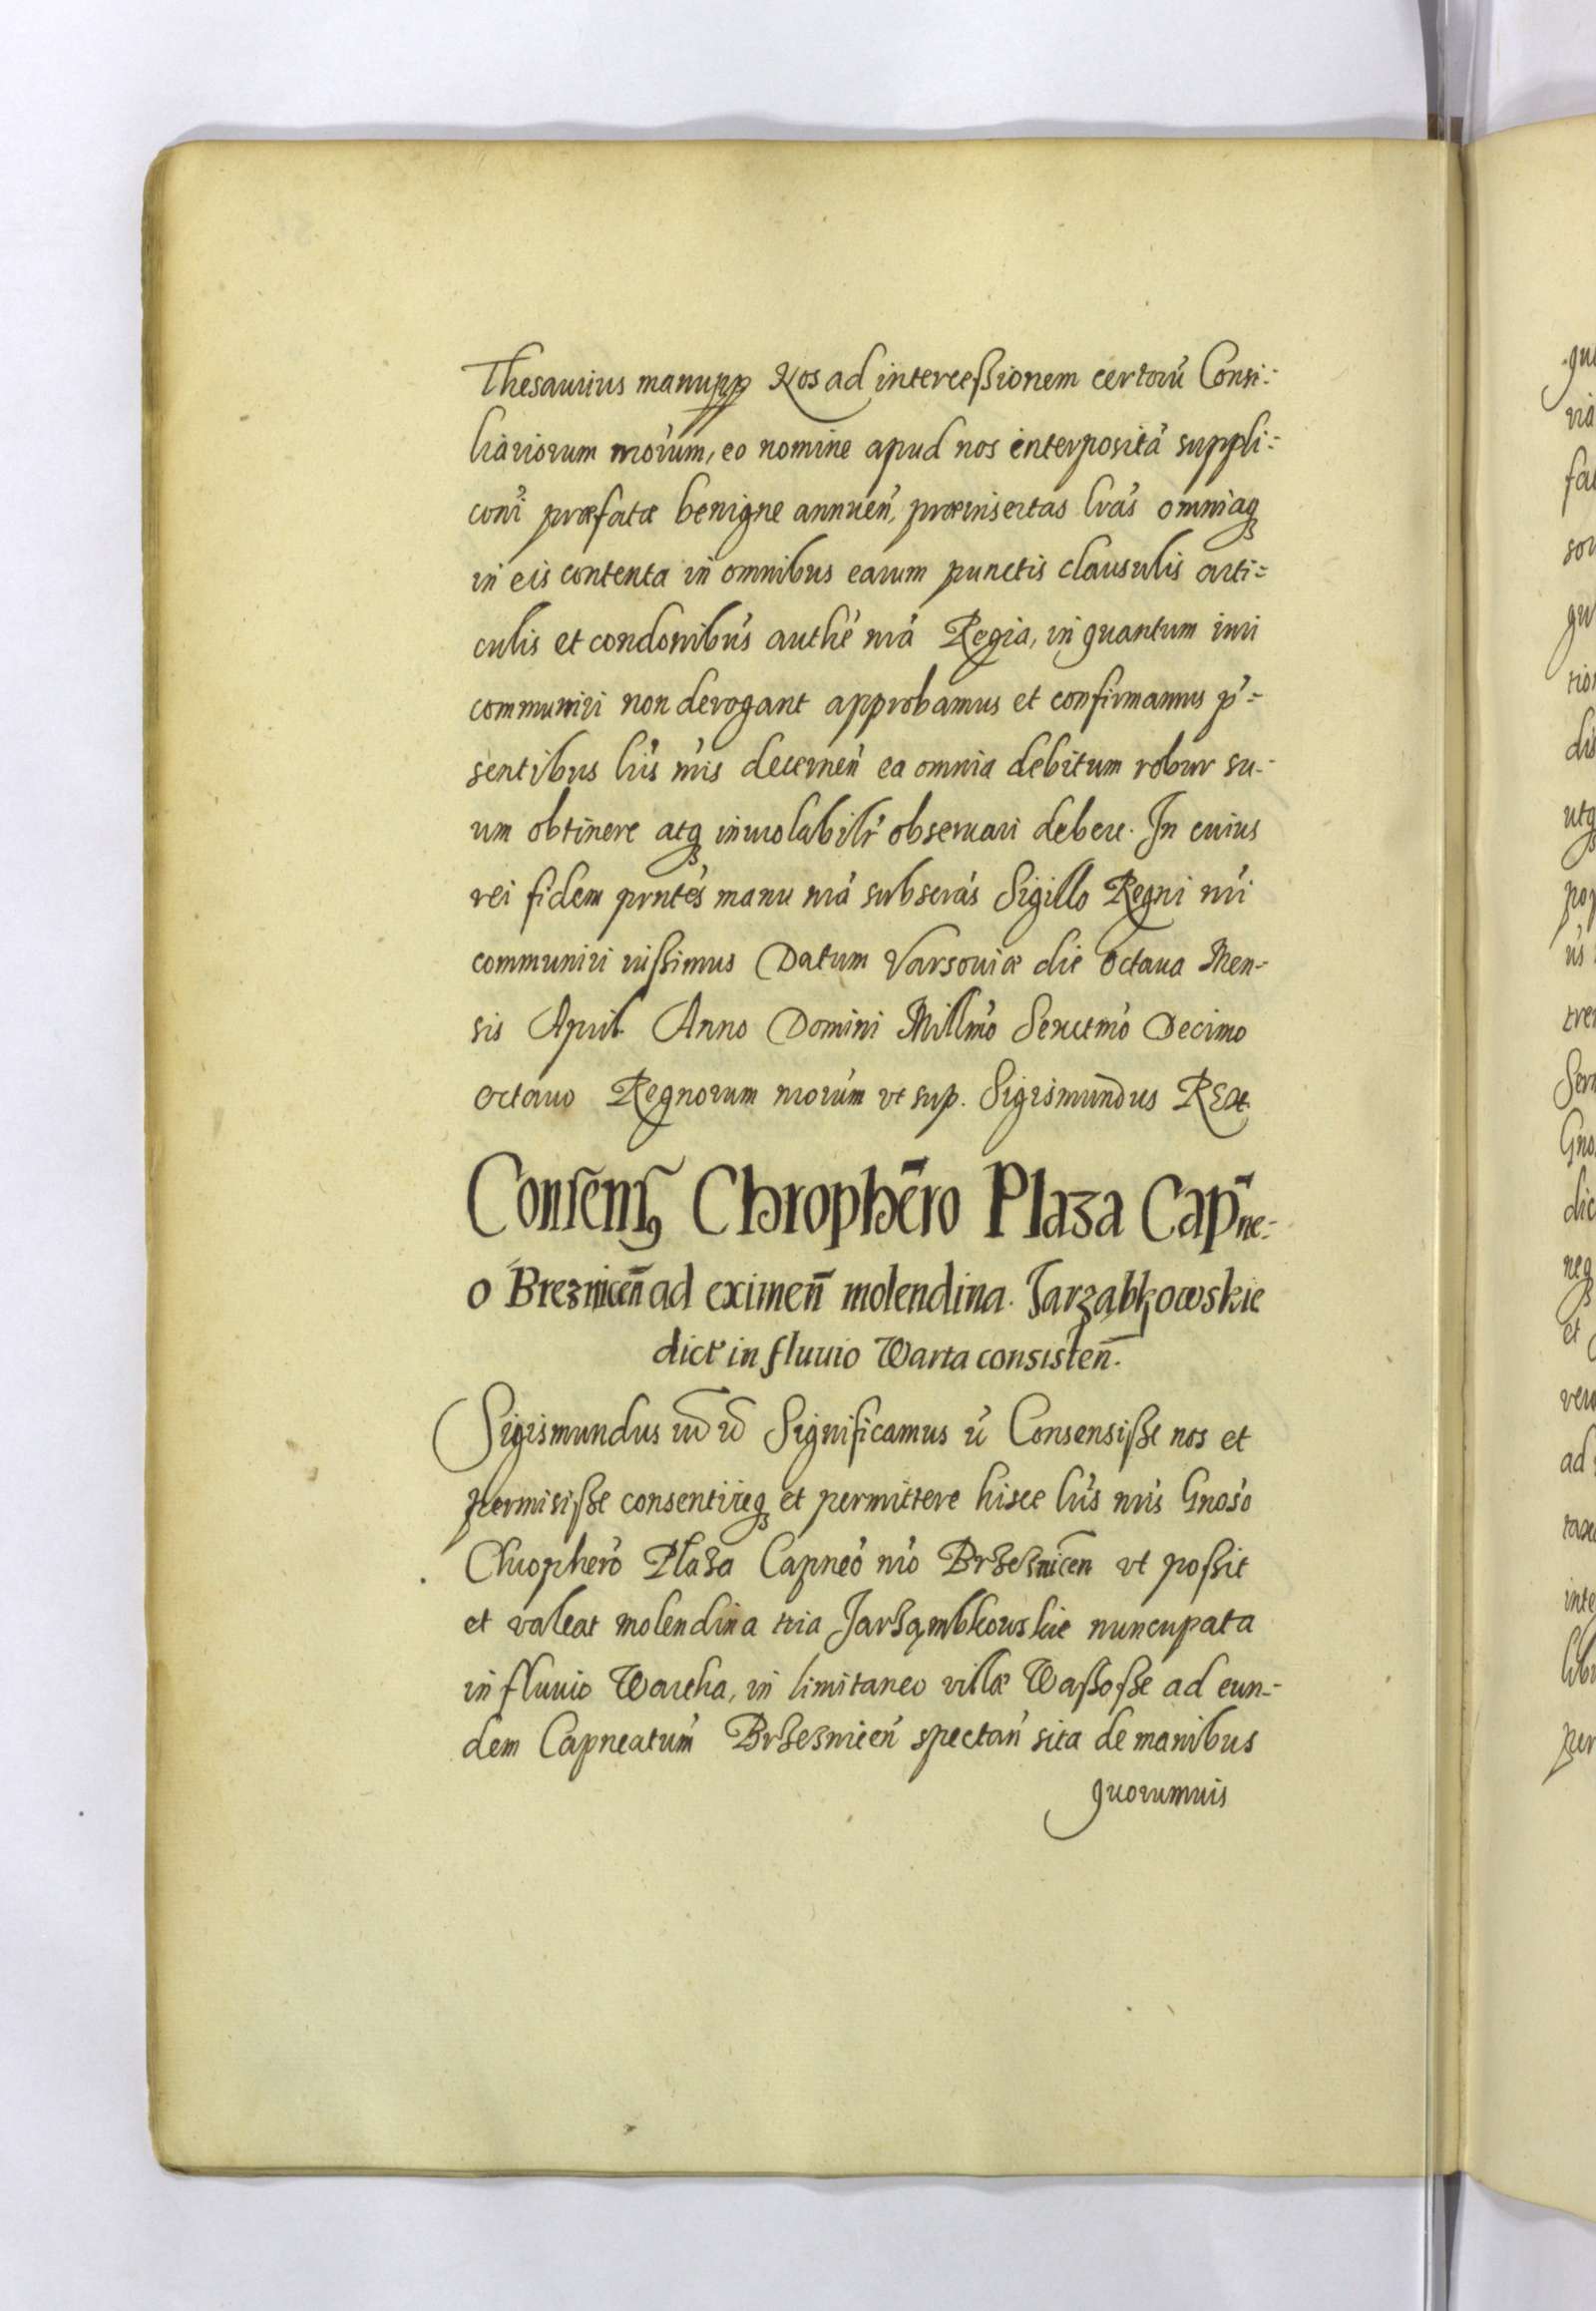 Thesaurius manupp Nos ad intercessionem certorú Consi:
liariorum nrórum, eo nomine apud nos interposità suppli:
coni præfatæ benigne annuen̄, præinsertas lrás omniaq
in eis contenta in omnibus earum punctis clausulis arti:
culis et condonibus authé nrá Regia, in quantum iuri
communiri non derogant approbamus et confirmamus p:
sentibus lris nris decernen̄ ea omnia debitum robur su:
um obtinere atq inuiolabilr obseruari debere. In cuius
rei fidem pntés manu nrá subscrás Sigillo Regni nri
communiri iussimus Datum Varsouiæ die octaua Men-
sis April Anno Domini Millmo Sexctmo Decimo
octauo Regnorum nrorúm vt sup. Sigismundus REX
Consens Chrophēro Plaza Capne-
o Brezniceñ ad eximeñ molendina Jarząbkowskie
dict in fluuio Warta consisteñ.
Sigismundus Significamus ú Consensisse nos et
permisisse consentireq et permittere hisce lris nris Gnoso
Chrophero Plaza Capneo nro Brzeznicen vt possit
et valeat molendina tria Jarząmbkowskie nuncupata
in fluuio Wartha, in limitaneo villæ Wassosse ad eun-
dem Capneatum Brzeznicen̄ spectan̄ sita de manibus
quorumuis